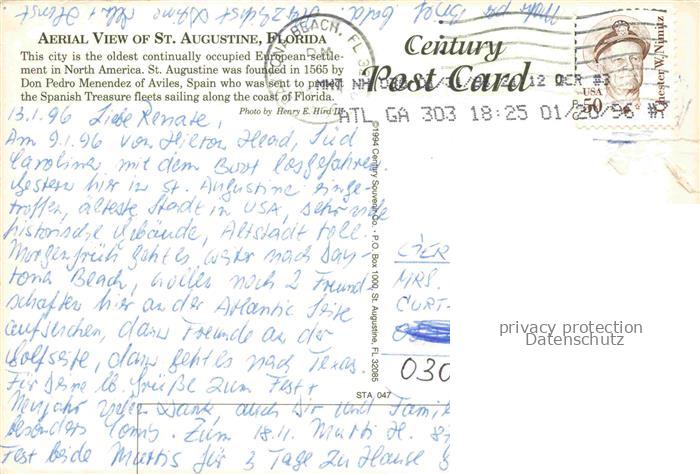 AERIAL VIEW OF ST. AUGUSTINE, FLORIDA
This city is the oldest continually occupied European settle-
ment in North America. St. Augustine was founded in 1565 by
Don Pedro Menendez of Aviles, Spain who was sent to protect
the Spanish Treasure fleets sailing along the coast of Florida.
Photo by Henry E. Hird III
Century
Post Card
BEACH, FL
PM
12 OCR #3
ATL GA 303 18:25 01/20/96 #
USA
50
Chester W. Nimitz
13.1.96 Liebe Renate,
Am 9.1.96 von Hilton Head, Süd
Carolina mit dem Boot losgefahren.
Gestern hier in St. Augustine einge-
troffen, älteste Stadt in USA, sehr viele
historische Gebäude, Altstadt toll.
Morgenfrüh geht es weiter nach Day-
tona Beach, wollen noch 2 Freund-
schaften hier an der Atlantic Seite
aufsuchen, dann Freunde an der
Golfseite, dann geht es nach Texas.
Für Deine lb. Grüße zum Fest +
Neujahr vielen Dank auch Dir und Famil
besonders Tomy. Zum 18.11. Mutti H.
Fest beide Muttis für 3 Tage zu Hause
©1994 Century Souvenir Co. • P.O. Box 1000, St. Augustine, FL 32085
STA 047
MRS.
CURT-
030
privacy protection
Datenschutz